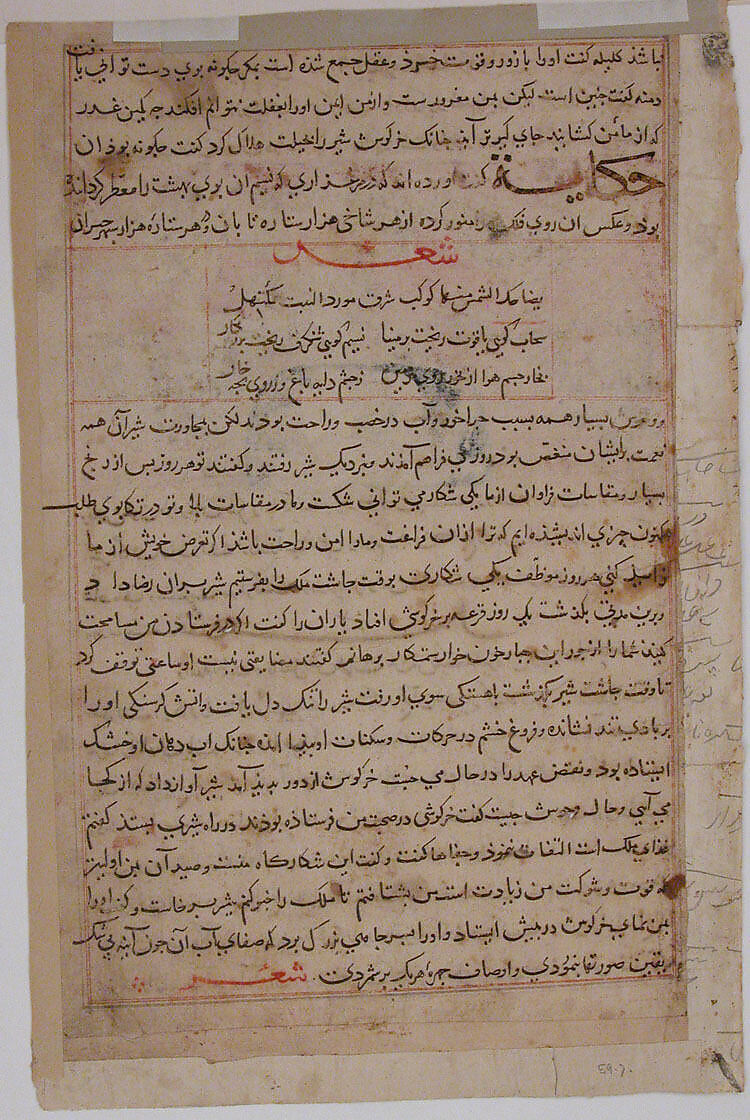 باشد کلیله کفت اورا با زور و قوت خرد و عقل جمع شده است بمکر چکونه بروی دست توانی یافت
دمنه کفت چنین است لیکن بمن مغرورست و از من ایمن اورا بغفلت بتوانم افکند چه کمین غدر
که از مأمن کشایند جای کیرتر آید چنانک خرکوش شیر را بحیلت هلاک کرد کفت چکونه بود آن
حکایت کفت آورده اند که در مرغزاری که نسیم آن بوی بهشت را معطر کرداند
بود و عکس آن روی فلک را منور کرده از هر شاخی هزار ستاره تابان و در هر ستاره هزار سپهر حیران
شعر
یضاحک الشمس منها کوکب شرق مورد النبت مکتهل
سحاب کویی یاقوت ریخت بر مینا نسیم کویی شنکرف ریخت بر زنکار
بخار چشم هوا از بخور روی زمین ز چشم دایه باغ و ز روی بچه خار
وحوش بسیار همه بسبب چراخور و آب در خصب و راحت بودند لکن بمجاورت شیر آن همه
نعمت برایشان منغص بود روزی فراهم آمدند و بنزدیک شیر رفتند و کفتند تو هر روز پس از رنج
بسیار و مقاسات فراوان از ما یکی شکار می توانی شکست و ما در مقاسات بلا و تو در تکاپوی طلب
اکنون چیزی اندیشیده ایم که ترا از آن فراغت و ما را امن و راحت باشد اکر تعرض خویش از ما
زایل کنی هر روز موظف یکی شکاری بوقت چاشت ملک را بفرستیم شیر بران رضا داد
و برین مدتی بکذشت یک روز قرعه بر خرکوش افتاد یاران را کفت اکر در فرستادن من مسامحت
کنید شما را از جور این جبار خون خوار ستمکار برهانم کفتند مضایقتی نیست او ساعتی توقف کرد
تا وقت چاشت شیر بکذشت باهستکی سوی او رفت شیر را تنک دل یافت و آتش کرسنکی اورا
بر بادی تند نشانده و فروغ خشم در حرکات و سکنات او پیدا آمده چنانک آب دهان او خشک
ایستاده بود و نقض عهد را در حال می جست خرکوش از دور پدید آمد شیر آواز داد که از کجا
می آیی و حال وحوش چیست کفت خرکوشی در صحبت من فرستاده بودند در راه شیری بستد کفتم
غذای ملک است التفات ننمود و جفاها کفت و کفت این شکارکاه منست و صید آن بمن اولیتر
که قوت و شوکت من زیادت است من بشتافتم تا ملک را خبر کنم شیر برخاست و کفت اورا
بمن نمای خرکوش در پیش ایستاد و اورا بسر چاهی بزرک برد که صفای آب آن چون آینه بی شک
و یقین صورتها بنمودی و اوصاف چهره هر یک بر شمردی شعر
59.7.